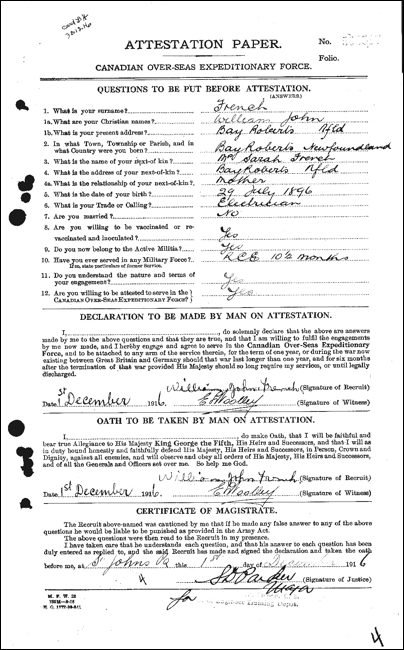 ATTESTATION PAPER.
No.
Folio.
CANADIAN OVER-SEAS EXPEDITIONARY FORCE.
QUESTIONS TO BE PUT BEFORE ATTESTATION.
(ANSWERS)
1. What is your surname? French
1a. What are your Christian names? William John
1b. What is your present address? Bay Roberts Nfld
2. In what Town, Township or Parish, and in
what Country were you born? Bay Roberts Newfoundland
3. What is the name of your next-of kin? Mrs Sarah French
4. What is the address of your next-of-kin? Bay Roberts Nfld
4a. What is the relationship of your next-of-kin? Mother
5. What is the date of your birth? 29 July 1896
6. What is your Trade or Calling? Electrician
7. Are you married? No
8. Are you willing to be vaccinated or re-
vaccinated and inoculated? Yes
9. Do you now belong to the Active Militia? Yes
10. Have you ever served in any Military Force? R.C.E. 10½ months
If so, state particulars of former Service.
11. Do you understand the nature and terms of
your engagement? Yes
12. Are you willing to be attested to serve in the
CANADIAN OVER-SEAS EXPEDITIONARY FORCE? Yes
DECLARATION TO BE MADE BY MAN ON ATTESTATION.
I, do solemnly declare that the above are answers
made by me to the above questions and that they are true, and that I am willing to fulfil the engagements
by me now made, and I hereby engage and agree to serve in the Canadian Over-Seas Expeditionary
Force, and to be attached to any arm of the service therein, for the term of one year, or during the war now
existing between Great Britain and Germany should that war last longer than one year, and for six months
after the termination of that war provided His Majesty should so long require my services, or until legally
discharged.
William John French (Signature of Recruit)
Date 1st December 1916. (Signature of Witness)
OATH TO BE TAKEN BY MAN ON ATTESTATION.
I, do make Oath, that I will be faithful and
bear true Allegiance to His Majesty King George the Fifth, His Heirs and Successors, and that I will as
in duty bound honestly and faithfully defend His Majesty, His Heirs and Successors, in Person, Crown and
Dignity, against all enemies, and will observe and obey all orders of His Majesty, His Heirs and Successors,
and of all the Generals and Officers set over me. So help me God.
William John French (Signature of Recruit)
Date 1st December 1916. (Signature of Witness)
CERTIFICATE OF MAGISTRATE.
The Recruit above-named was cautioned by me that if he made any false answer to any of the above
questions he would be liable to be punished as provided in the Army Act.
The above questions were then read to the Recruit in my presence.
I have taken care that he understands each question, and that his answer to each question has been
duly entered as replied to, and the said Recruit has made and signed the declaration and taken the oath
before me, at St Johns PQ this 1st day of December 1916
(Signature of Justice)
4
Major
for
M. F. W. 23
4